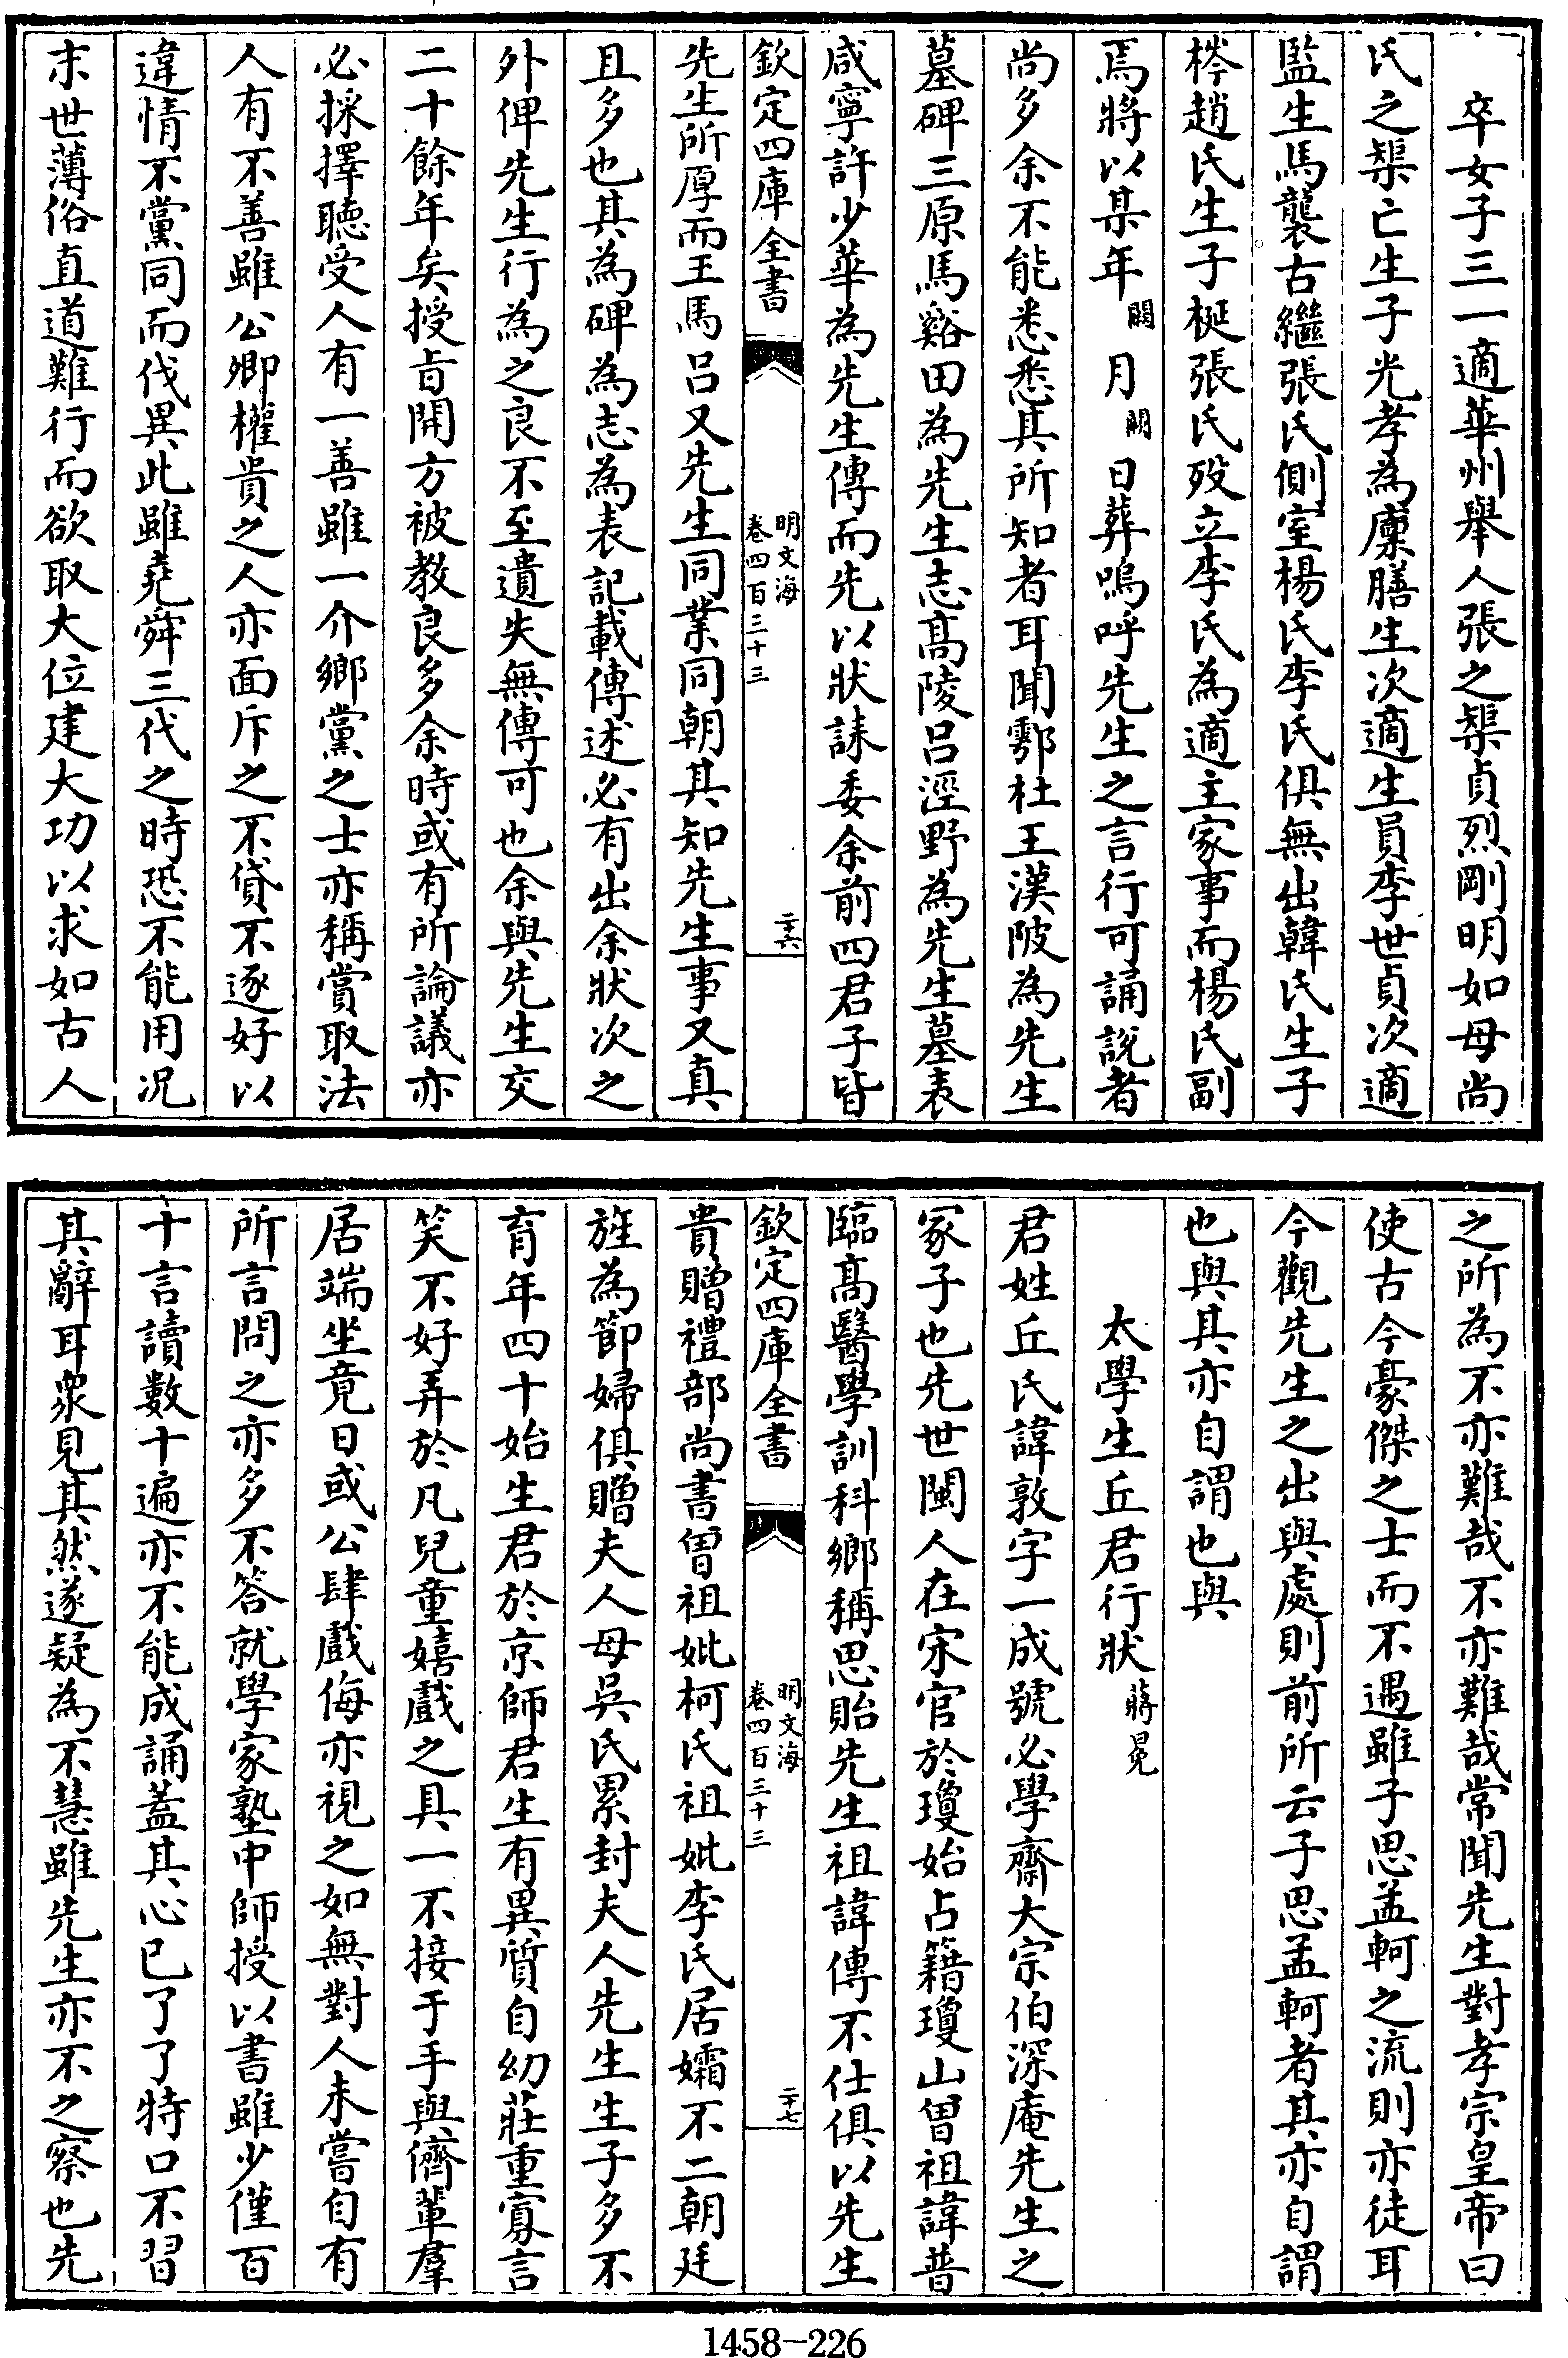 卒女子三一適華州舉人張之榘貞烈剛明如母尚
氏之榘亡生子光孝為廩膳生次適生員李世貞次適
監生馬襲古繼張氏側室楊氏李氏俱無出韓氏生子
梣趙氏生子梴張氏歿立李氏為適主家事而楊氏副
焉將以某年闕月闕日葬嗚呼先生之言行可誦說者
尚多余不能悉悉其所知者耳聞鄠杜王漢陂為先生
墓碑三原馬谿田為先生志高陵呂涇野為先生墓表
咸寧許少華為先生傳而先以狀誄委余前四君子皆
欽定四庫全書
明文海
卷四百三十三
二十六
先生所厚而王馬呂又先生同業同朝其知先生事又真
且多也其為碑為志為表記載傳述必有出余狀次之
外俾先生行為之良不至遺失無傳可也余與先生交
二十餘年矣授旨開方被教良多余時或有所論議亦
必採擇聽受人有一善雖一介鄉黨之士亦稱賞取法
人有不善雖公卿權貴之人亦面斥之不貸不逐好以
違情不黨同而伐異此雖堯舜三代之時恐不能用況
末世薄俗直道難行而欲取大位建大功以求如古人
之所為不亦難哉不亦難哉常聞先生對孝宗皇帝曰
使古今豪傑之士而不遇雖子思孟軻之流則亦徒耳
今觀先生之出與處則前所云子思孟軻者其亦自謂
也與其亦自謂也與
太學生丘君行狀 蔣冕
君姓丘氏諱敦字一成號必學齋大宗伯深庵先生之
冢子也先世閩人在宋官於瓊始占籍瓊山曾祖諱普
臨高醫學訓科鄉稱思貽先生祖諱傳不仕俱以先生
欽定四庫全書
明文海
卷四百三十三
二十七
貴贈禮部尚書曾祖妣柯氏祖妣李氏居孀不二朝廷
旌為節婦俱贈夫人母吳氏累封夫人先生生子多不
育年四十始生君於京師君生有異質自幼莊重寡言
笑不好弄於凡兒童嬉戲之具一不接于手與儕輩羣
居端坐竟日或公肆戲侮亦視之如無對人未嘗自有
所言問之亦多不答就學家塾中師授以書雖少僅百
十言讀數十遍亦不能成誦蓋其心已了了特口不習
其辭耳衆見其然遂疑為不慧雖先生亦不之察也先
1458-226